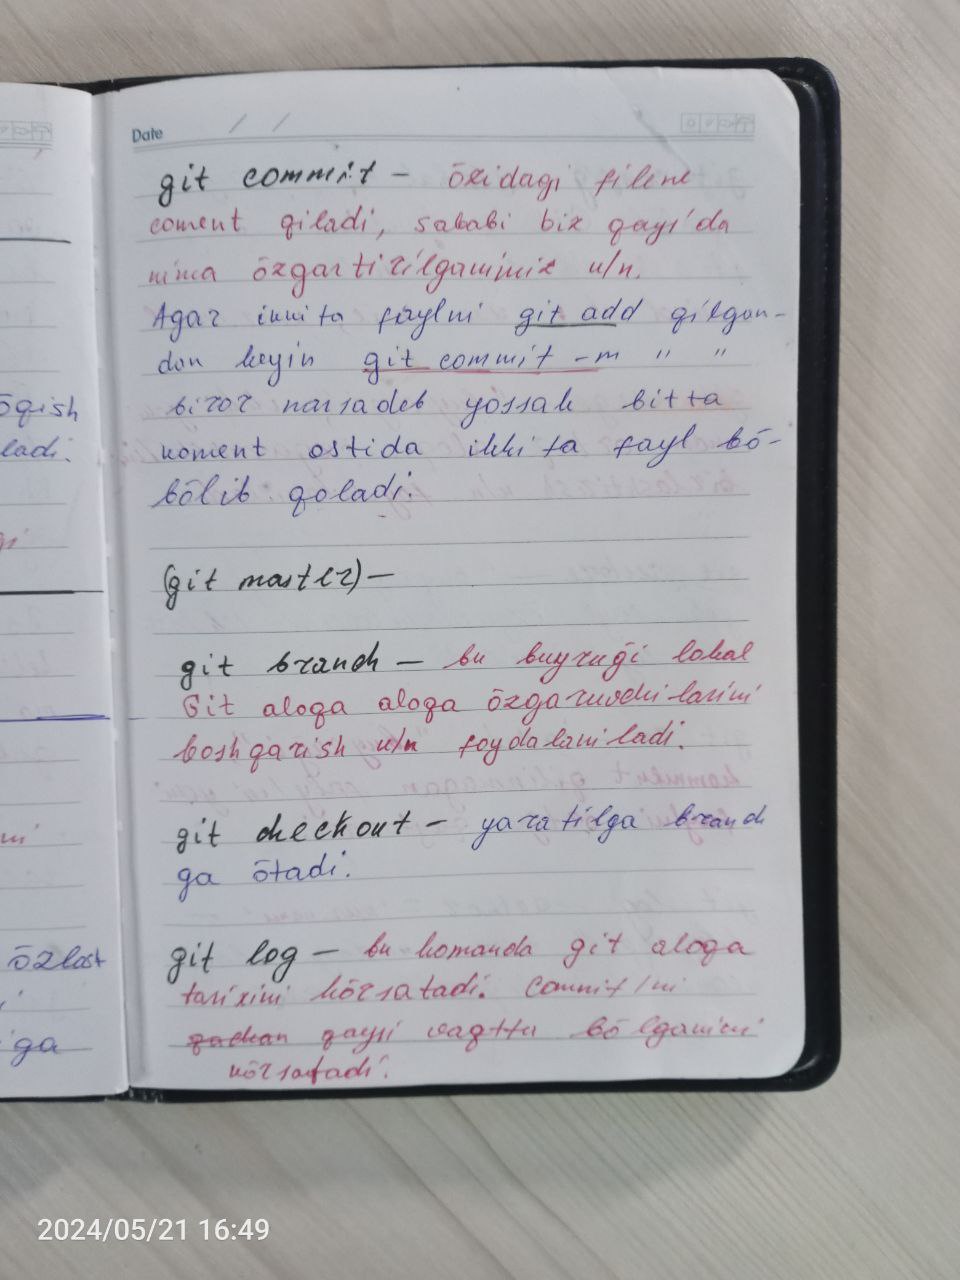 Date / /
git commit - ōzidagi filene
coment qiladi, sababi biz qaysi'da
nima ōzgartirilganimiz u/n.
Agar ikkita faylni git add qilgan-
dan keyin git commit -m " "
biror narsadeb yossak bitta
koment ostida ikkita fayl bō-
bōlib qoladi.
(git master) -
git branch - bu buyruği lokal
Git aloqa aloqa ōzgaruvchilarini
boshqarish u/n foydalaniladi.
git checkout - yaratilga branch
ga ōtadi.
git log - bu komanda git aloqa
tarixini kōrsatadi. Commit/ni
qachan qaysi vaqtta bōlganini
kōrsatadi.
ōqish
ladi.
ōzlast
ga
2024/05/21 16:49